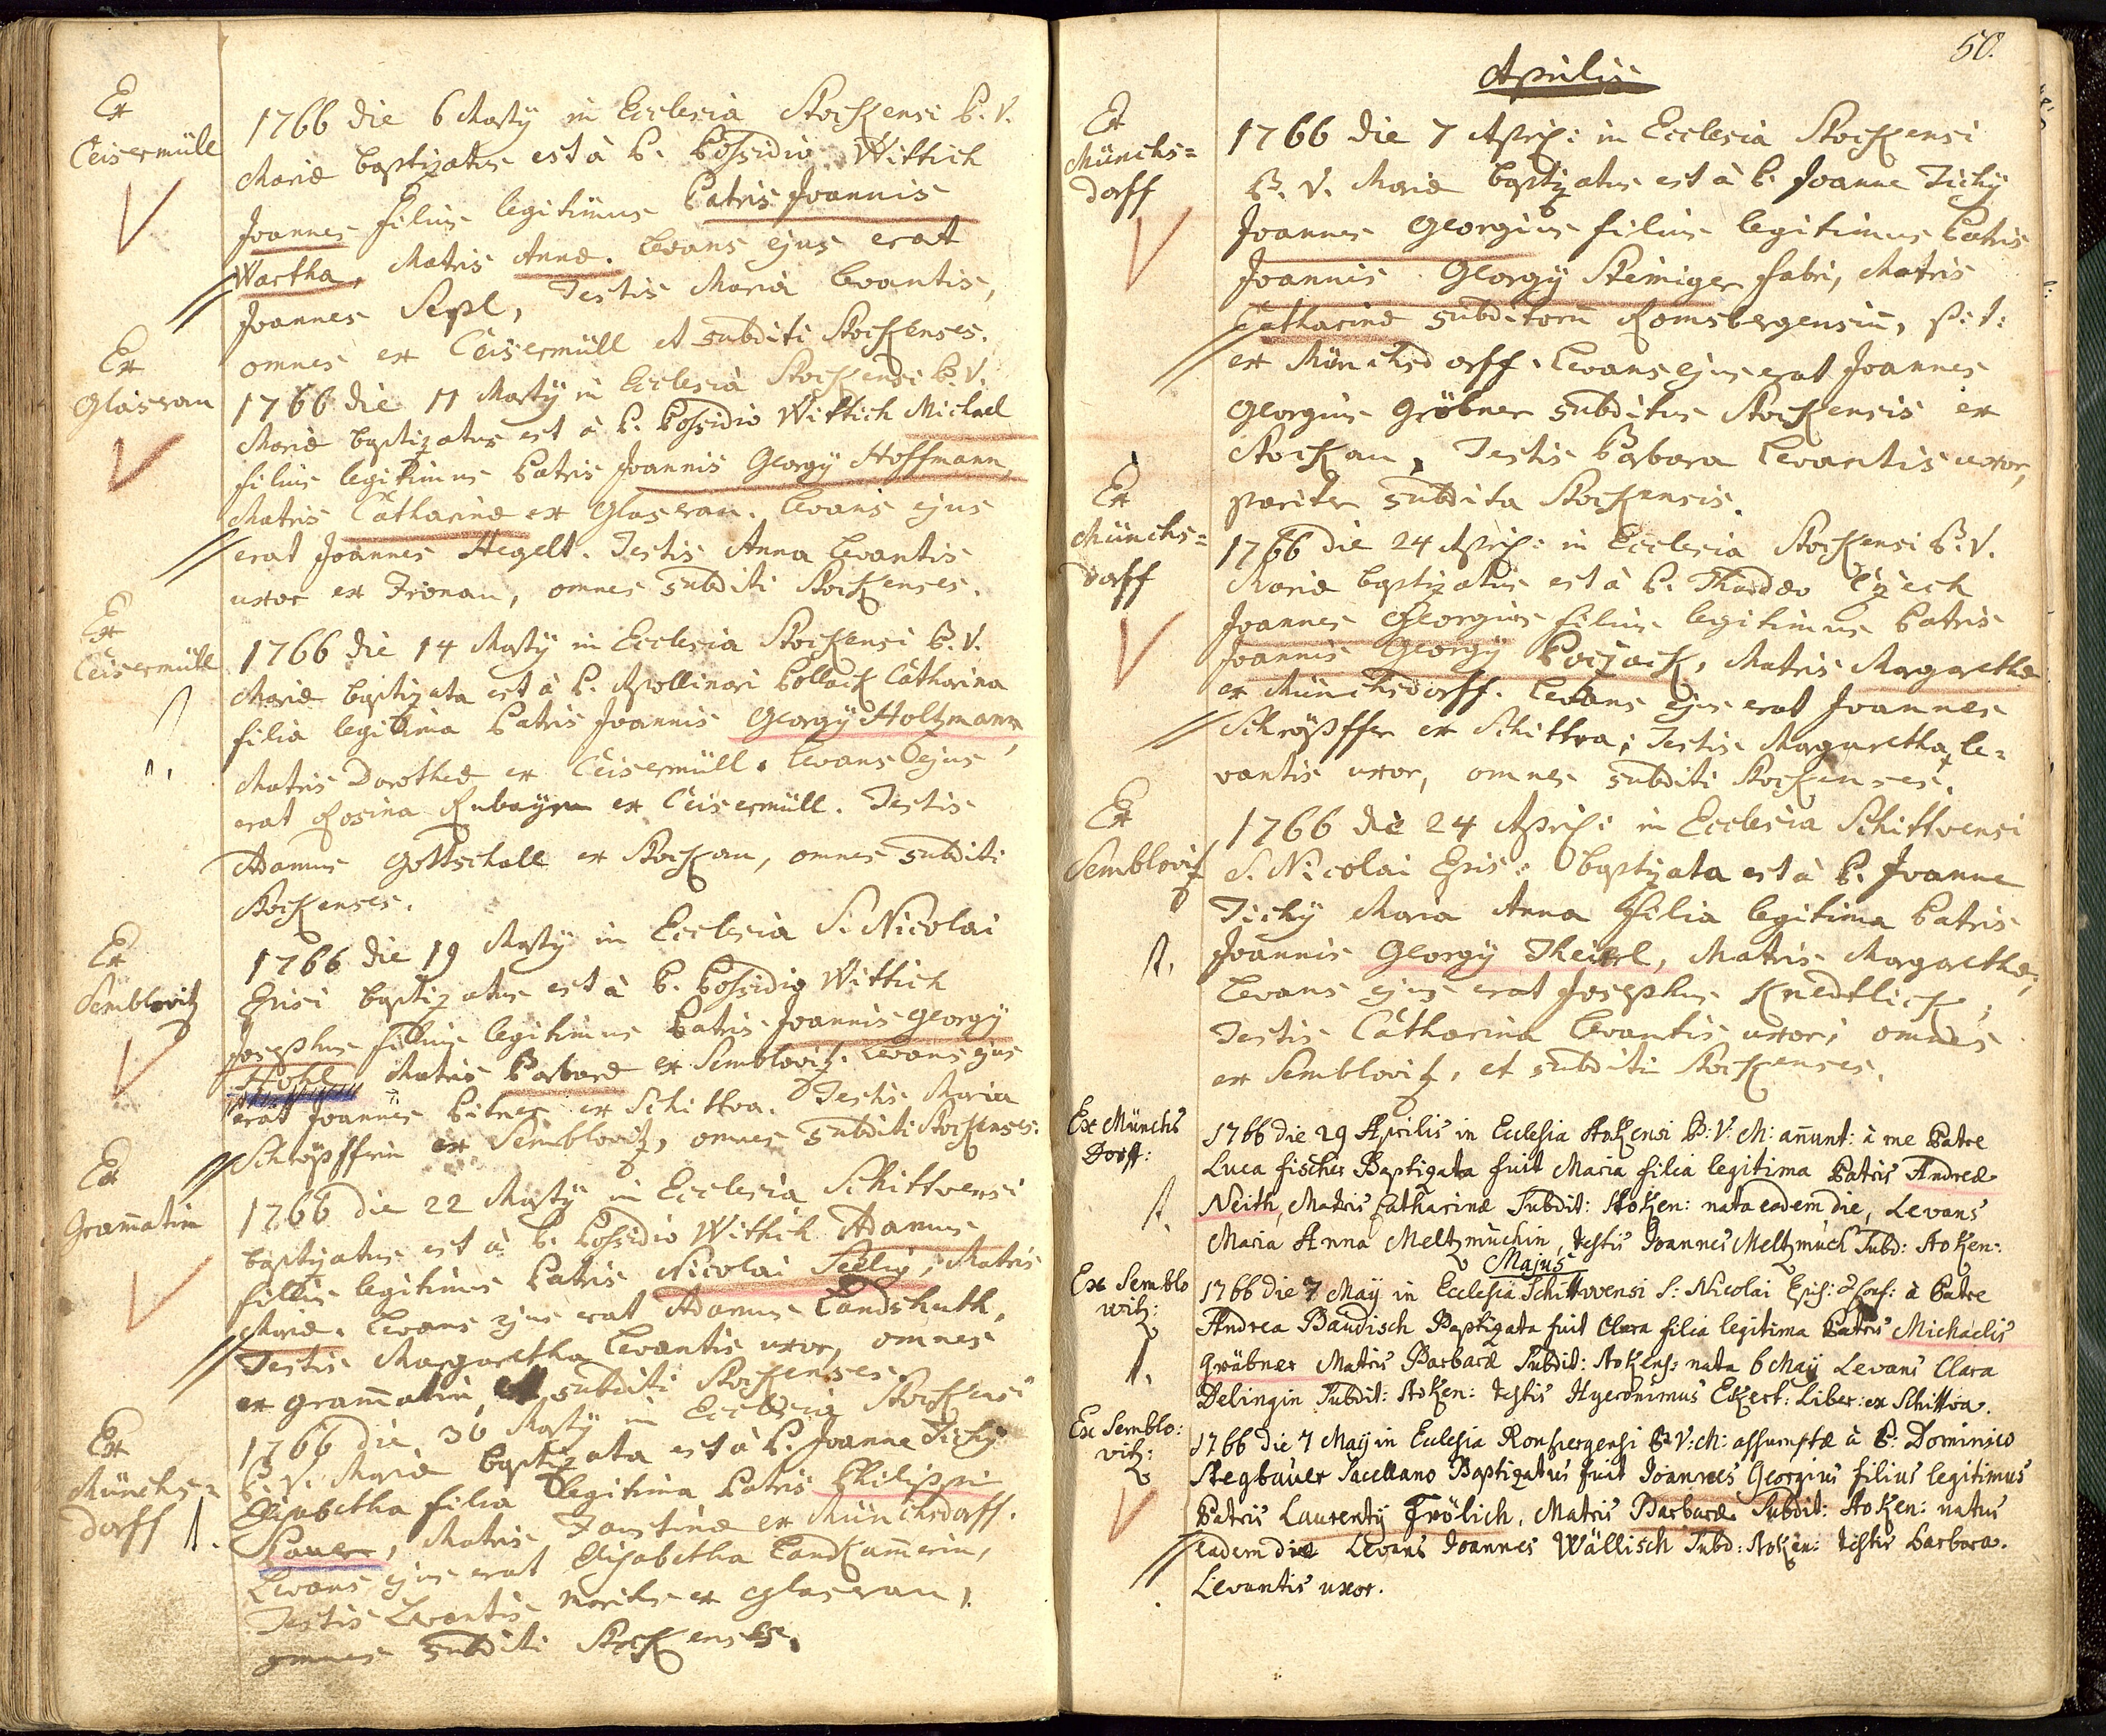 Ex
Ceisermüll
1766 die 6 Martÿ in Ecclesia Stockensi B. V.
Mariæ baptizatus est à P. Possidio Wittich
Joannes filius legitimus Patris Joannis
Wartha, Matris Annæ. Levans ejus erat
Joannes Sepl, Testis Maria Levantis,
omnes ex Ceisermüll et subditi Stockenses.
Ex
Glaserau
1766 die 11 Martÿ in Ecclesia Stockensi B. V.
Mariæ baptizatus est à P. Possidio Wittich Michael
filius legitimus Patris Joannis Georgÿ Hoffmann,
Matris Catharinæ ex Glaserau. Levans ejus
erat Joannes Hegelt. Testis Anna Levantis
uxor ex Fronau, omnes subditi Stockenses.
Ex
Ceisermüll
1766 die 14 Martÿ in Ecclesia Stockensi B. V.
Mariæ baptizata est à P. Apollinari Pollack Catharina
filia legitima Patris Joannis Georgÿ Holtzmann,
Matris Dorotheæ ex Ceisermüll. Levans ejus
erat Rosina ex Ceisermüll. Testis
Adamus Gottschall ex Stockau, omnes subditi
Stockenses.
Ex
Semblovitz
1766 die 19 Martÿ in Ecclesia S. Nicolai
baptizatus est à P. Possidio Wittich
Josephus filius legitimus Patris Joannis Georgÿ
Matris Barbaræ ex Semblovitz. Levans ejus
erat Joannes Pitner ex Schittva. Testis Maria
Schröpfferin ex Semblovitz, omnes subditi Stockenses.
Ex
Gram̄atin
1766 die 22 Martÿ in Ecclesia Schittvensi
baptizatus est à P. Possidio Wittich Adamus
filius legitimus Patris Nicolai Matris
Mariæ. Levans ejus erat Adamus Landshuth,
Testis Margaretha Levantis uxor, omnes
ex gram̄atin, et subditi Stockenses.
Ex
Münchs=
dorff
1766 die 30 Martÿ in Ecclesia Stockensi
B. V. Mariæ baptizata est à P. Joanne Tichÿ
Elisabetha filia legitima Patris Philippi
Pauer, Matris Faustinæ ex Münchsdorff.
Levans ejus erat Elisabetha Landkam̄erin,
Testis Levantis maritus ex Glaserau,
omnes subditi Stockenses.
50.
Aprilis
Ex
Münchs=
dorff
1766 die 7 April: in Ecclesia Stockensi
B. V. Mariæ baptizatus est à P. Joanne Tichÿ
Joannes Georgius filius legitimus Patris
Joannis Georgÿ Steiniger fabri, Matris
Catharinæ subditorū Romsbergensiū, p: t:
ex Münchsdorff. Levans ejus erat Joannes
Georgius Gröbner subditus Stockensis ex
Stockau, Testis Barbara Levantis uxor,
pariter subdita Stockensis.
Ex
Münchs=
dorff
1766 die 24 April: in Ecclesia Stockensi B. V.
Mariæ baptizatus est à P. Thadæo Czech
Joannes Georgius filius legitimus Patris
Joannis Georgÿ Matris Margarethæ
ex Münchsdorff. Levans ejus erat Joannes
Schröpffer ex Schittva; Testis Margaretha le=
vantis uxor, omnes subditi Stockenses.
Ex
Semblovitz
1766 die 24 April: in Ecclesia Schittvensi
S. Nicolai baptizata est à P. Joanne
Tichÿ Maria Anna filia legitima Patris
Joannis Georgÿ Matris Margarethæ,
Levans ejus erat Josephus Knedtlick,
Testis Catharina Levantis uxor; omnes
ex Semblovitz, et subditi Stockenses.
Ex Münchs
Dorff:
1766 die 29 Aprilis in Ecclesia Stokensi B: V: M: an̄unt: à me Patre
Luca fischer Baptizata fuit Maria filia legitima Patris Andreæ
Neith, Matris Catharinæ Subdit: Stoken: nata eadem die, Levans
Maria Anna Meltzmuchin, testis Joannes Meltzmuch Subd: Stoken:
Majus
Ex Semblo
witz:
1766 die 7 May in Ecclesia Schittwensi S: Nicolai Epis: & Conf: à Patre
Andrea Baudisch Baptizata fuit Clara filia legitima Patris Michaelis
Gröbner Matris Barbaræ Subdit: Stokens: nata 6 May Levans Clara
Delingin Subdit: Stoken: testis Hyeronimus Ekert: Liber: ex Schittva.
Ex Semblo:
vitz:
1766 die 7 Maÿ in Ecclesia Ronspergensi B: V: M: assumptæ à P: Dominico
Stegbauer Sacellano Baptizatus fuit Joannes Georgius filius legitimus
Patris Laurentÿ Frölich, Matris Barbaræ Subdit: Stoken: natus
eadem die Levans Joannes Wällisch Subd: Stoken: testis Barbara.
Levantis uxor.